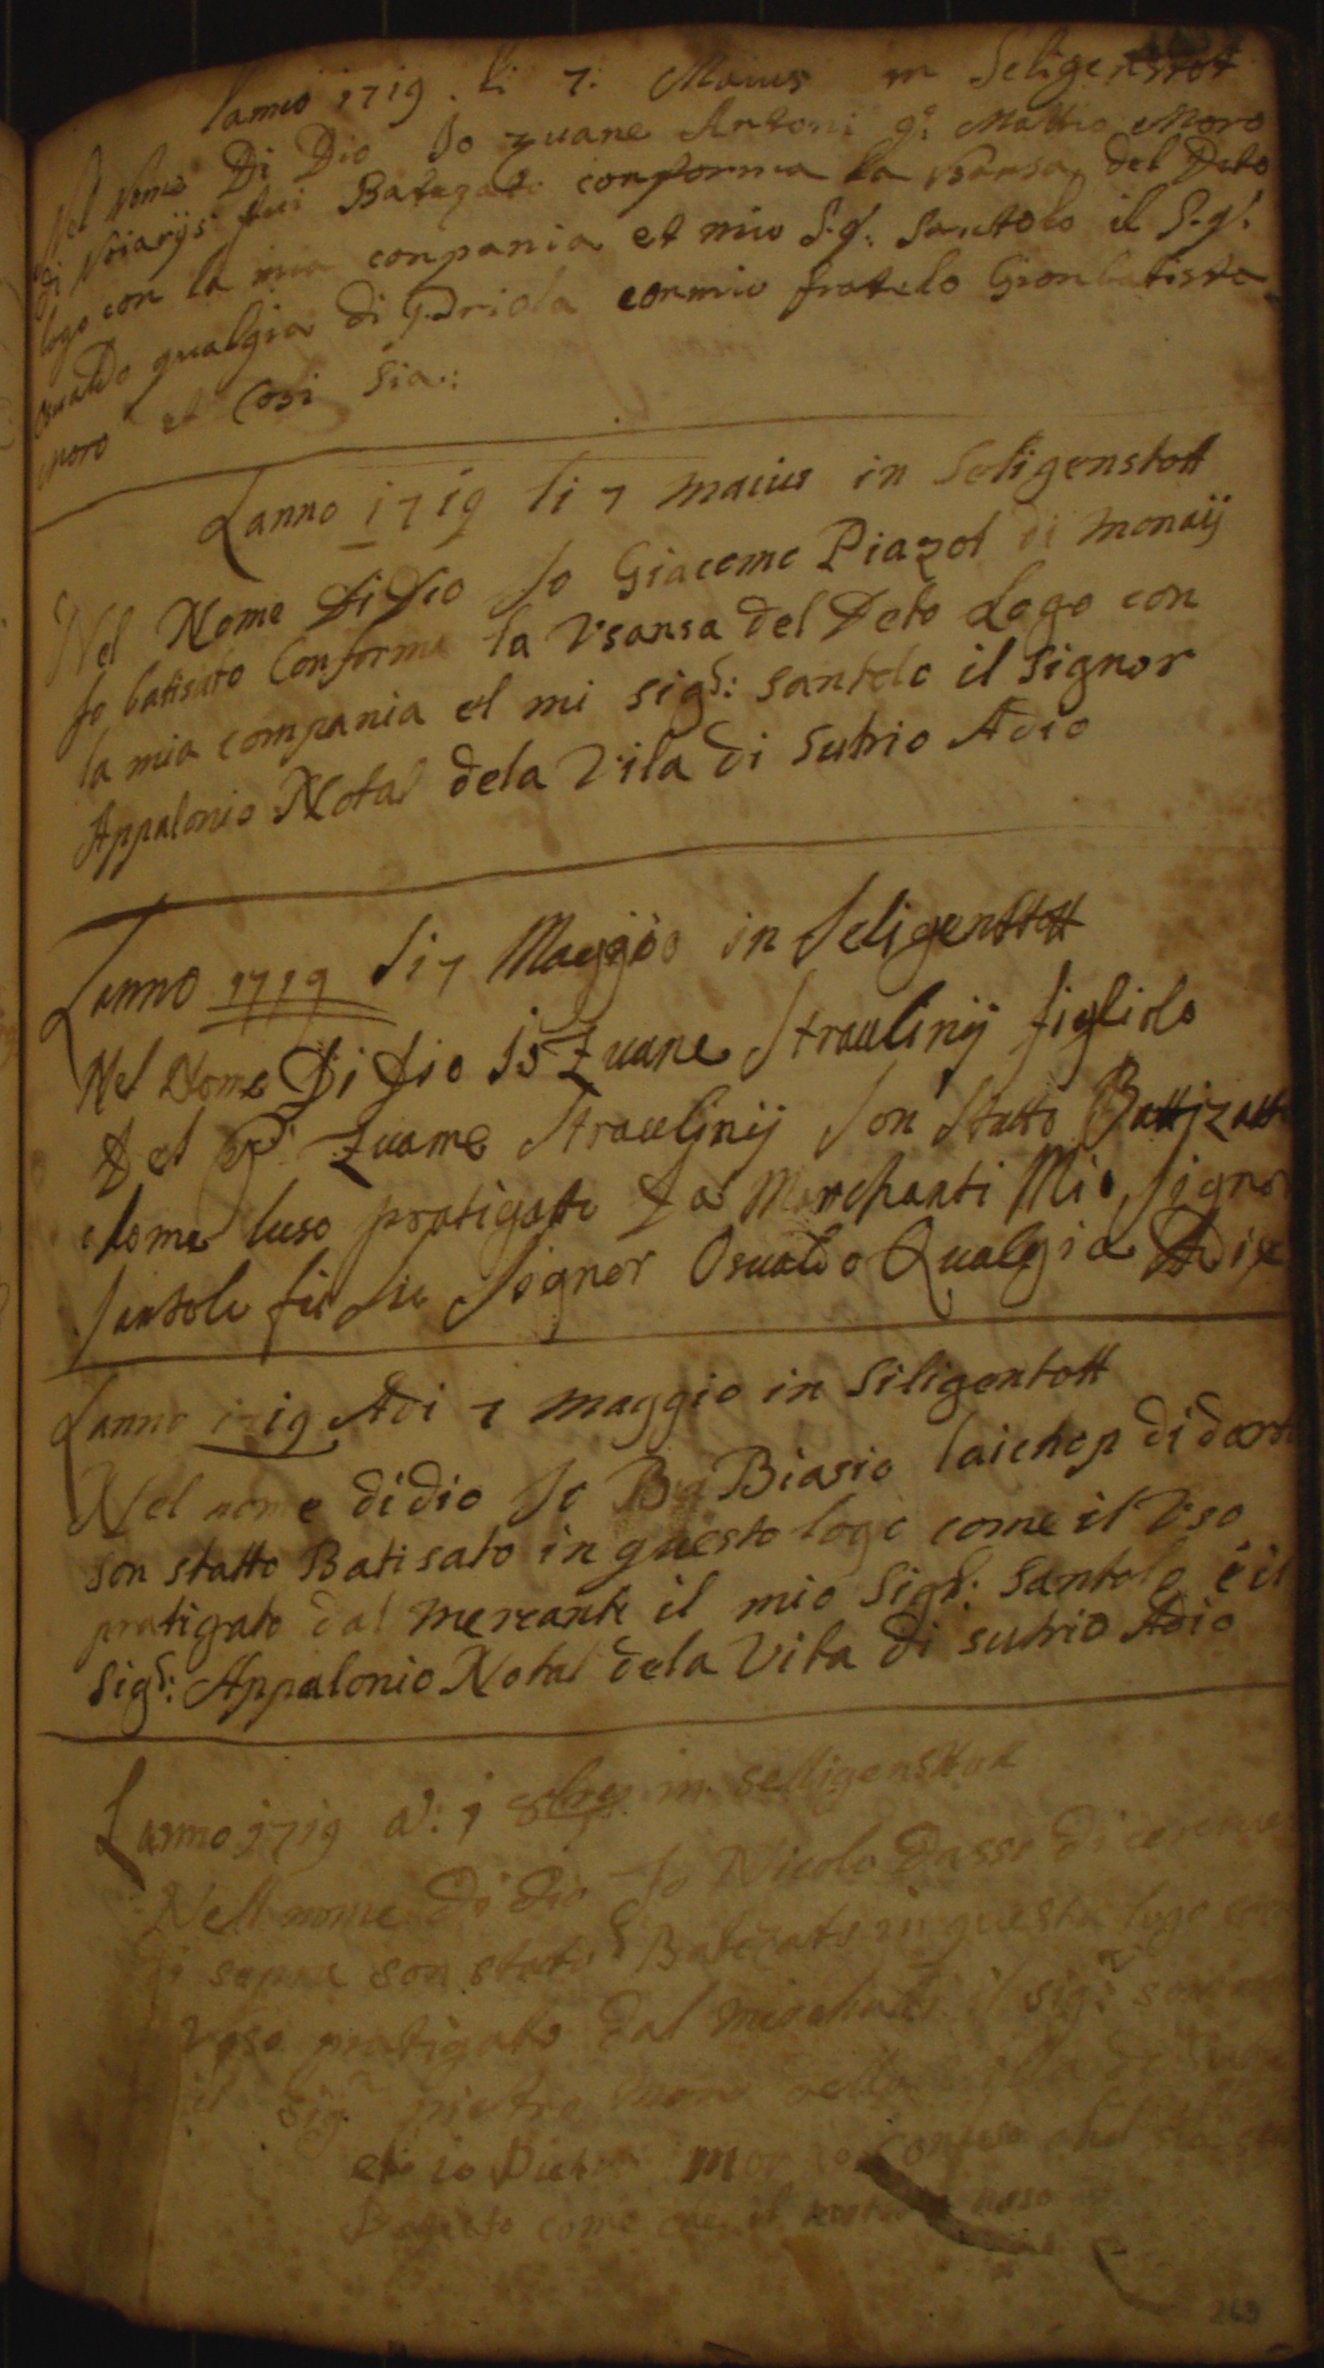 Lanno 1719. li 7. Maius in Seligenstot
Nel Nome Di Dio Io zuane Antoni q: Mattio Moro
di Noiarijs fui Batezato conforma la usansa del Deto
logo con la mia conpania et mio S.g.r Santolo il S.g.r
Osualdo qualgia di Priola con mio fratelo Gionbatista
Moro et Cosi Sia:
Lanno 1719 li 7 maius in Seligenstott
Nel Nome Di Dio Io Giacomo Piazot di monaij
fo batisato Conforma la Vsansa del Deto Logo con
la mia compania el mi sig.r: santolo il signor
Appalonio Notal dela Vila di Sutrio Adio
Lanno 1719 Li 7 Maggio in Seligenstott
Nel Nome Di Dio Io Zuane Straulinij figliolo
Del Zuane Straulinij Son Statto Battizatto
Come luso pratigatto Da Merchanti Mio Signor
Santolo fu Signor Osualdo Qualgia
Lanno 1719 Adi 7 maggio in Siligentott
Nel nome di dio Io Biasio laichop di
son statto Batisato in questo logo come il Vso
pratigato dal mercante il mio Sig.r: Santolo é il
Sig.r: Appalonio Notal dela Vila di sutrio Adio
Lanno 1719 a: 7 8bre in selligenstatt
Nell nome di Dio Io Nicolo Dasso di
di sopra son stato Batezato in questo logo
Vso pratigato dal il sig.r
il Sig.r pietro moro della villa di
et io Pietro Moro confeso
come
269